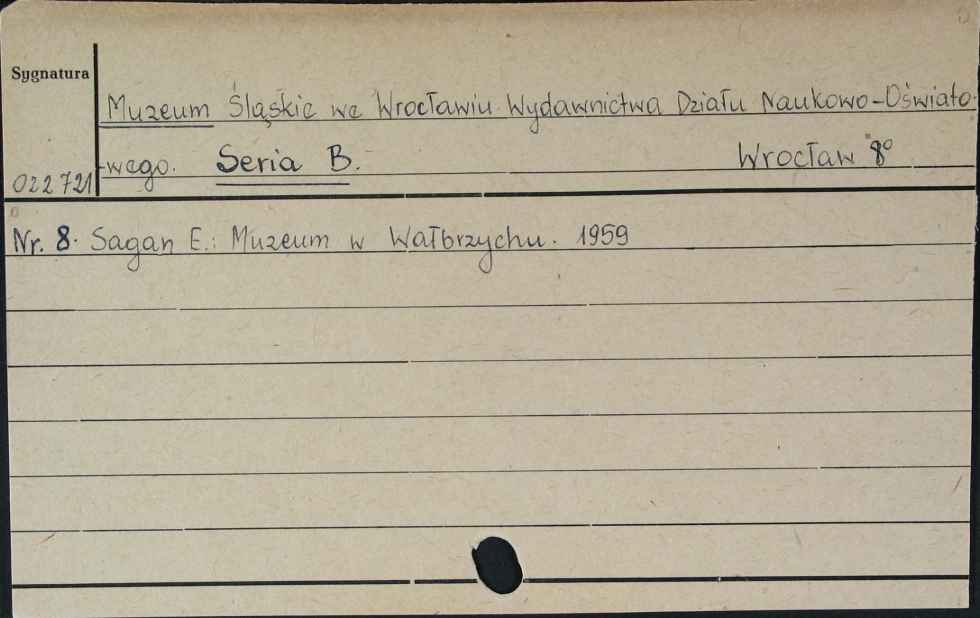 Sygnatura
Muzeum Śląskie we Wrocławiu. Wydawnictwa Działu Naukowo-Oświato-
wego. Seria B. Wrocław 8°
022721
Nr. 8. Sagan E.: Muzeum w Wałbrzychu. 1959